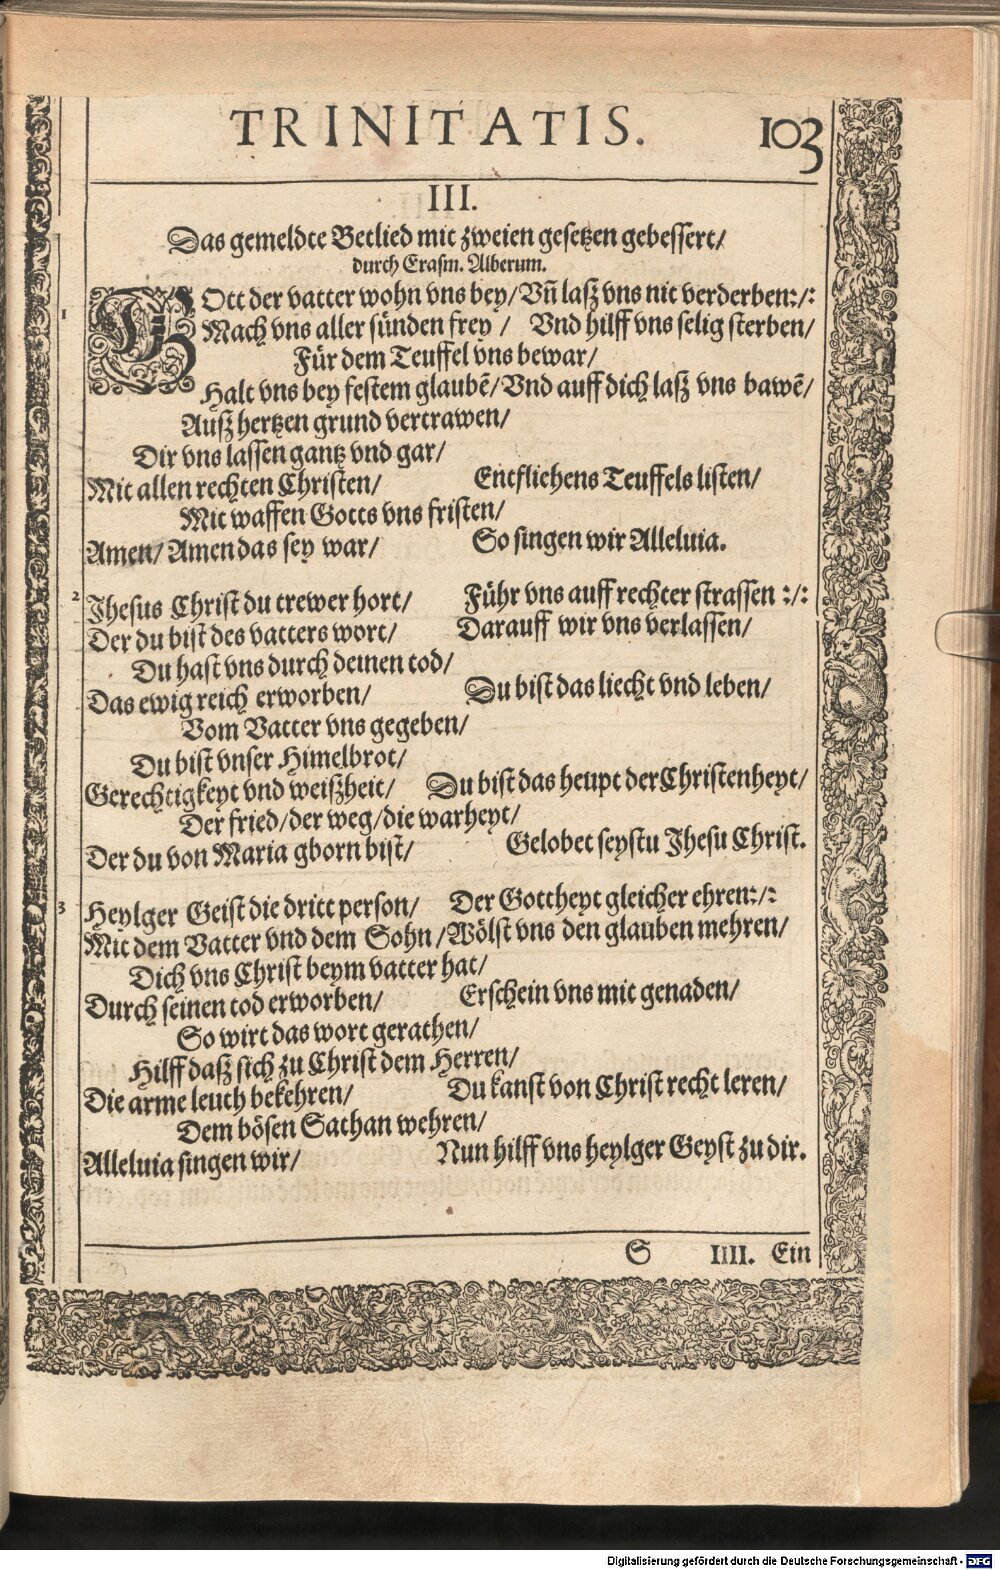 TRINITATIS. 103
III.
Das gemeldte Betlied mit zweien gesetzen gebessert/
durch Erasm. Alberum.
1 GOtt der vatter wohn vns bey/ Vñ lasz vns nit verderben:/:
Mach vns aller sünden frey / Vnd hilff vns selig sterben/
Für dem Teuffel vns bewar/
Halt vns bey festem glaubẽ/ Vnd auff dich lasz vns bawẽ/
Ausz hertzen grund vertrawen/
Dir vns lassen gantz vnd gar/
Mit allen rechten Christen/ Entfliehens Teuffels listen/
Mit waffen Gotts vns fristen/
Amen/ Amen das sey war/ So singen wir Alleluia.
2 Jhesus Christ du trewer hort/ Führ vns auff rechter strassen :/:
Der du bist des vatters wort/ Darauff wir vns verlassen/
Du hast vns durch deinen tod/
Das ewig reich erworben/ Du bist das liecht vnd leben/
Vom Vatter vns gegeben/
Du bist vnser Himelbrot/
Gerechtigkeyt vnd weiszheit/ Du bist das heupt der Christenheyt/
Der fried/ der weg/ die warheyt/
Der du von Maria gborn bist/ Gelobet seystu Jhesu Christ.
3 Heylger Geist die dritt person/ Der Gottheyt gleicher ehren:/:
Mit dem Vatter vnd dem Sohn/ Wölst vns den glauben mehren/
Dich vns Christ beym vatter hat/
Durch seinen tod erworben/ Erschein vns mit genaden/
So wirt das wort gerathen/
Hilff dasz sich zu Christ dem Herren/
Die arme leuth bekehren/ Du kanst von Christ recht leren/
Dem bösen Sathan wehren/
Alleluia singen wir/ Nun hilff vns heylger Geyst zu dir.
S IIII. Ein
Digitalisierung gefördert durch die Deutsche Forschungsgemeinschaft - DFG